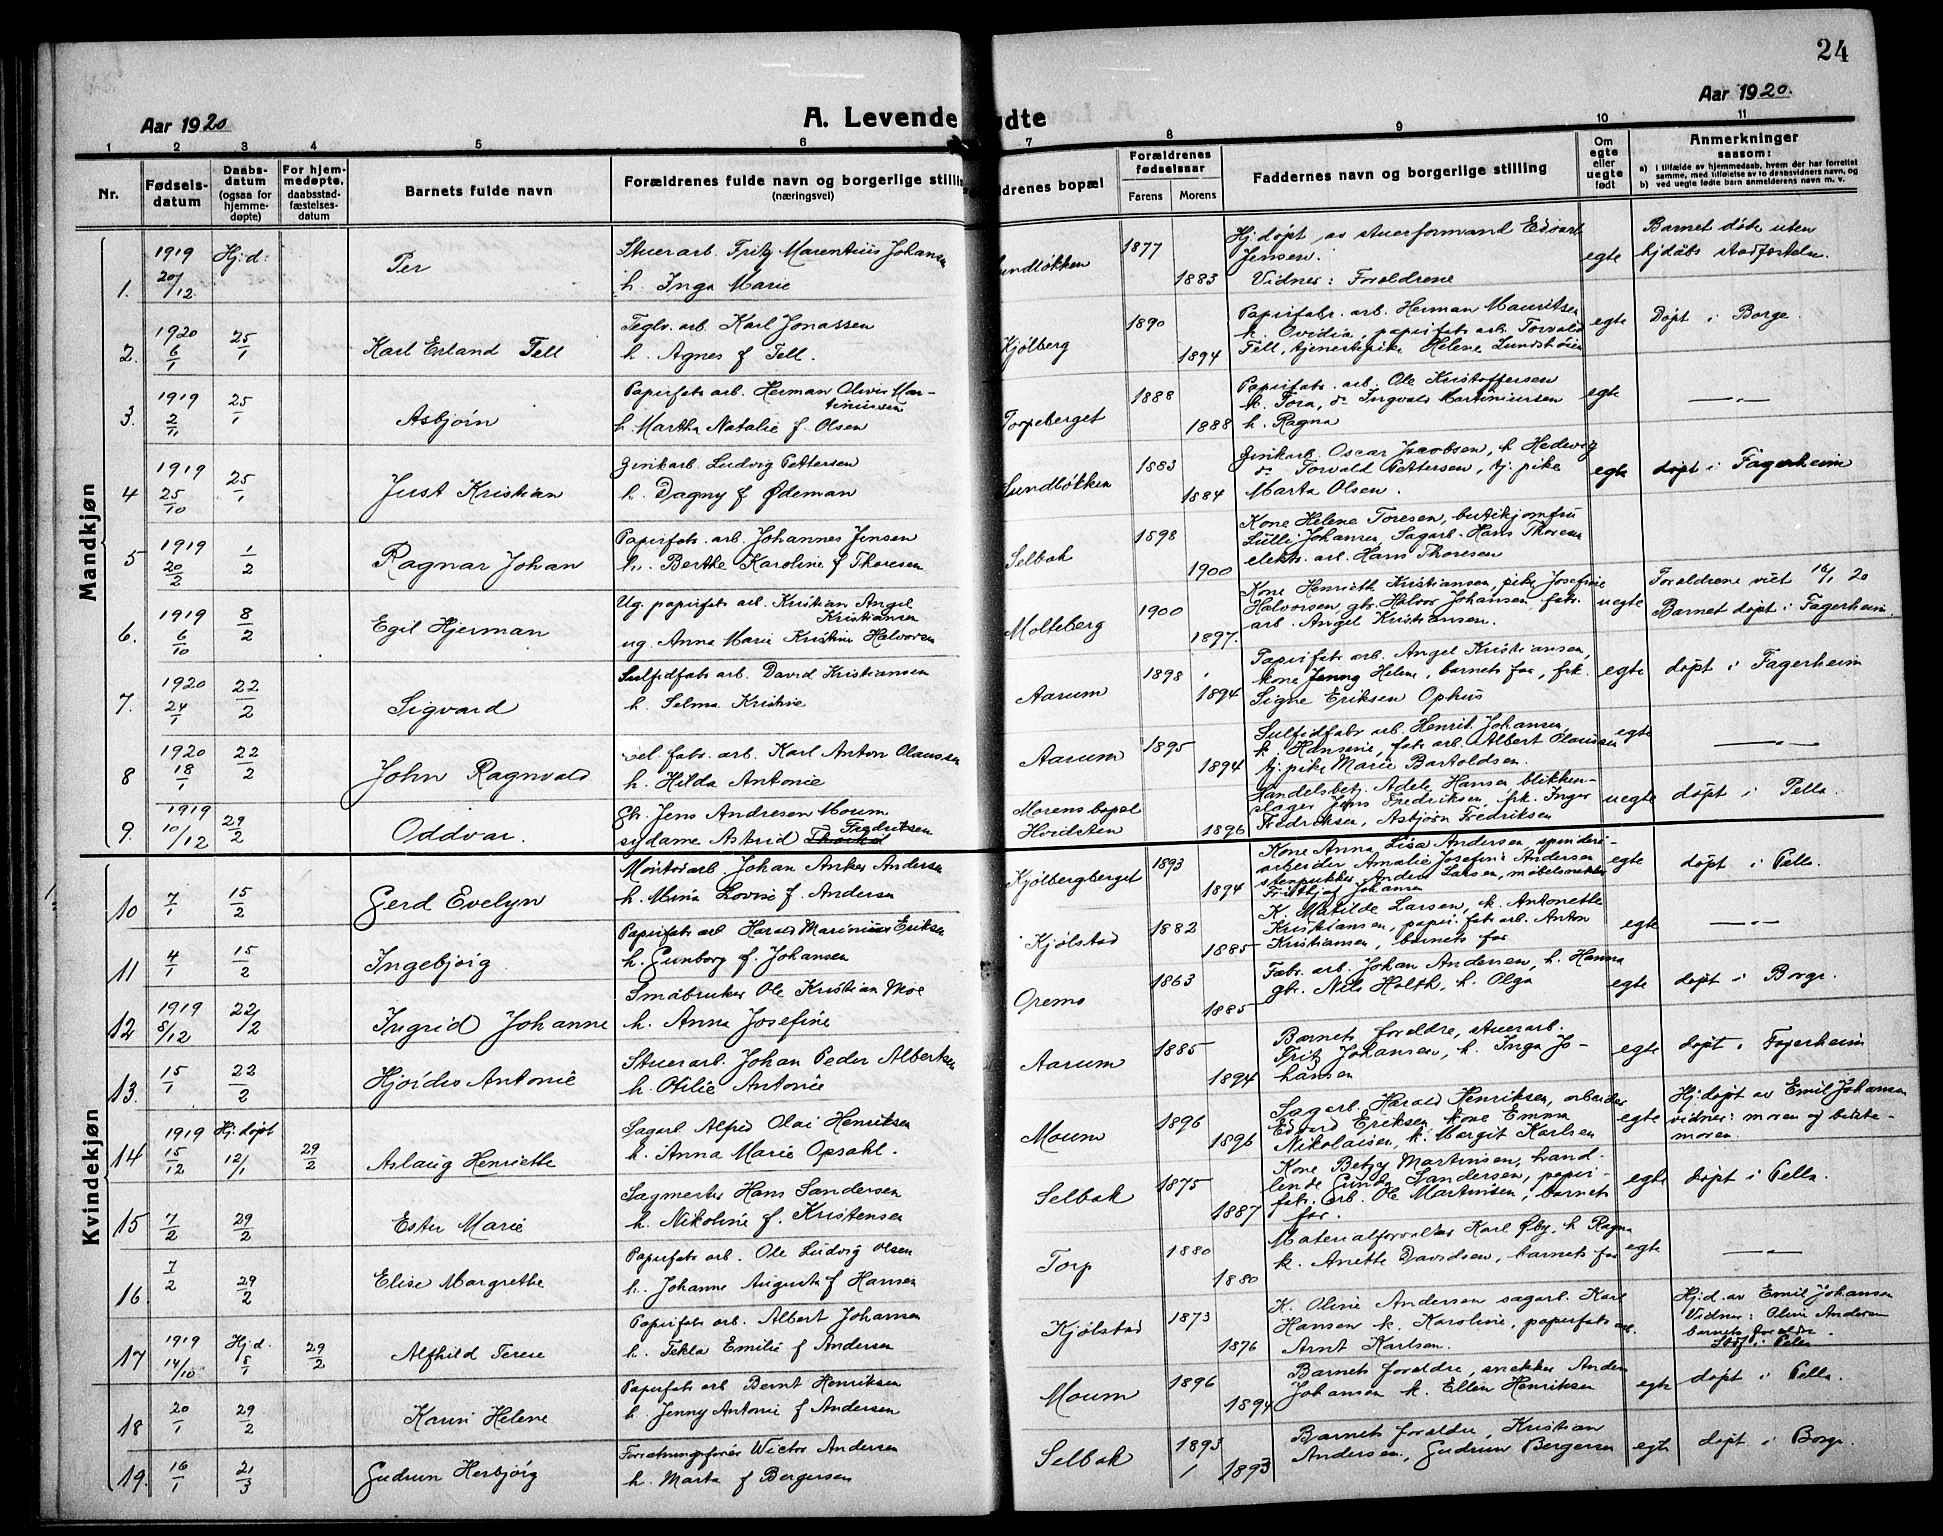 24
Aar 1920
A. Levende
ødte
Aar 1920.
1 2 3 4 5 6 7 8 9 10 11
Nr.
Fødsels-
datum
Daabs-
datum
(ogsaa for
hjemme-
døpte)
For hjem-
medøpte,
daabsstad-
fæstelses-
datum
Barnets fulde navn
Forældrenes fulde navn og borgerlige stilling
(næringsvei)
drenes bopæl
Forældrenes
fødselsaar
Farens Morens
Faddernes navn og borgerlige stilling
Om
egte
eller
uegte
født
Anmerkninger
saasom:
a) i tilfælde av hjemmedaab, hvem der har forrettet
samme, med tilføielse av to daabsvidners navn, og
b) ved uegte fødte barn anmelderens navn m. v.
Mandkjøn
1. 1919 20/12 Hj.d. Per
Stuerarb. Fritz Marentius Johansen
h. Inga Marie
Sundløkken 1877 1883
Hj.døpt av stuerformand Edvart
Jensen.
Vidner: Forældrene
egte
Barnet døde uten
hjdåbs stadfæstelse.
2. 1920 6/1 25/1 Karl Erland Tell
Teglv. arb. Karl Jonassen
h. Agnes f Tell.
Kjølberg 1890 1894
Papirfabr. arb. Herman Mauritsen
k. Ovidia, papirfab. arb. Torvald
Tell, tjenestepike Helene Lundstøien
egte
Døpt i Borge.
3. 1919 2/11 25/1 Asbjørn
Papirfabr. arb. Herman Oliver Mar-
tiniusen
h. Martha Natalie f. Olsen
Torpeberget 1888 1888
Papirfabr. arb. Ole Kristoffersen
k. Tora, do Ingvald Martiniussen
h. Ragna
egte
—„—
4 1919 25/10 25/1 Just Kristian
Gruskarb. Ludvig Pettersen
h. Dagny f Ødeman
Sundløkken 1883 1884
Oscar Jacobsen, h Hedevig
do Torvald Pettersen, tj. pike
Marta Olsen.
egte
døpt i Fagerheim
5 1919 20/2 1/2 Ragnar Johan
Papirfab. arb. Johannes Jensen
h. Berthe Karoline f Thoresen
Selbak 1898 1900
Kone Helene Toresen, butikjomfru
Lulli Johansen, Sagarb. Hans Thoresen
elektr. arb. Hans Thoresen
6. 1919 6/10 8/2 Egil Hjerman
Ug. papirfab. arb. Kristian Angel
Kristiansen
ug. Anna Marie Kristine Halvorsen
Molteberg 1900 1897.
Kone Henriette Kristiansen, pike Josefine
Halvorsen, gbr. Halvor Johansen, fabr.
arb. Angel Kristiansen.
uegte
Forældrene viet 18/1 20
Barnet døpt i Fagerheim.
7. 1920 24/1 22/2 Sigvard
Sulfidfab. arb. David Kristiansen
h. Selma Kristine
Aarum 1898 1894
Papirfab. arb. Angel Kristiansen,
kone Jenny Helene, barnets far, frk.
Signe Eriksen Ophus
egte
døpt i Fagerheim
8 1920 18/1 22/2 John Ragnvald
cel. fabr. arb. Karl Anton Olaussen
h. Hilda Antonie
Aarum 1895 1894
Sulfidfabr arb. Henrik Johansen,
k. Hansine, fabr. arb. Albert Olaussen
tj. pike Marie Bartoldsen.
egte
—„—
9. 1919 10/12 29/2 Oddvar.
Gbr. Jens Andresen Moum
sydame Astrid Fredriksen
Morens bopæl
Hvidsten 1896
Handelsbetj. Adele Hansen blikken-
slager Jens Fredriksen, frk. Inger
Fredriksen, Asbjørn Fredriksen
uegte
døpt i Pella.
Kvindekjøn
10 7/1 15/2 Gerd Evelyn
Montørarb. Johan Anker Andersen
h. Mina Lovise f. Andersen
Kjølbergberget 1893 1894
Kone Anna Lisa Andersen spinderi-
arbeider Amalie Josefine Andersen
stenhukker Anders Larsen, møbelsnekker
Fridthjof Johansen
egte
døpt i Pella.
11 4/1 15/2 Ingebjørg
Papirfab. arb Harald Marinius Eriksen
h. Gunborg f. Johansen
Kjølstad 1882 1885
K. Matilde Larsen, k. Antonette
Kristiansen, papir. fab. arb. Anton
Kristiansen, barnets far
egte
—„—
12 1919 8/12 22/2 Ingrid Johanne
Småbruker Ole Kristian Moe
h. Anna Josefine
Oremo 1863 1885
Fabr. arb. Johan Andersen, h. Hanna
gbr. Nils Holth, h. Olga
egte
døpt i Borge.
13. 15/1 22/2 Hjørdis Antonie
Stuerarb. Johan Peder Albertsen
h. Otilie Antonie
Aarum 1885 1894
Barnets foreldre, stuerarb.
Fritz Johansen, k. Inga Jo-
hansen
egte
døpt i Fagerheim
14 1919 15/12 Hj.døpt 12/1 29/2 Aslaug Henriette
Sagarb Alfred Olai Henriksen
h. Anna Marie Opsahl.
Moum 1896 1896
Sagarb. Harald Henriksen, arbeider
Edvard Eriksen kone Emma
Nikolaisen, k. Margit Karlsen
egte
Hj.døpt av Emil Johansen
vidner: moren og beste-
moren.
15 7/2 29/2 Ester Marie
Sagmester Hans Sandersen
h. Nikoline f. Kristensen
Selbak 1875 1887
Kone Betzy Martinsen, hand-
lende Gunda Sandersen, papir-
fab. arb. Ole Martinsen, barnets
far.
egte
døpt i Pella.
16 7/2 29/2 Elise Margrethe
Papirfab arb. Ole Ludvig Olsen
h. Johanne Augusta f Hansen
Torp 1880 1880
Materialforvalter Karl Øby, h Ragna
k. Anette Davidsen, barnets far
egte
—„—
17 1919 14/10 Hj.d. 8/1 29/2 Alfhild Terese
Papirfab arb. Albert Johansen
h. Tekla Emilie f Andersen
Kjølstad 1873 1876
K. Oline Andersen sagarb. Karl
Hansen k. Karoline, papirfab arb.
Arnt Karlsen.
Hj.d. av Emil Johansen
Vidner: Oline Andersen
barnets foreldre.
Stdf. i Pella
18 20/1 29/2 Karin Helene
Papirfab arb Bernt Henriksen
h Jenny Antonie f Andersen
Moum 1896 1894
Barnets foreldre, snekker Anders
Johansen k. Ellen Henriksen
egte
døpt i Pella.
19. 16/1 21/3 Gudrun Herbjørg
Forretningsfører Victor Andersen
h. Marta f Bergersen
Selbak 1893 1893
Barnets foreldre, Kristian
Andersen, Gudrun Bergersen
egte
døpt i Borge.